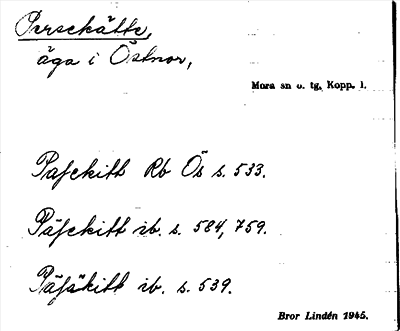 Persekätte,
äga i Östnor,
Mora sn o. tg, Kopp. l.
Pafekitt Rb Ös s. 533.
Päfekitt ib. s. 584, 759.
Päfäkitt ib. s. 539.
Bror Lindén 1945.